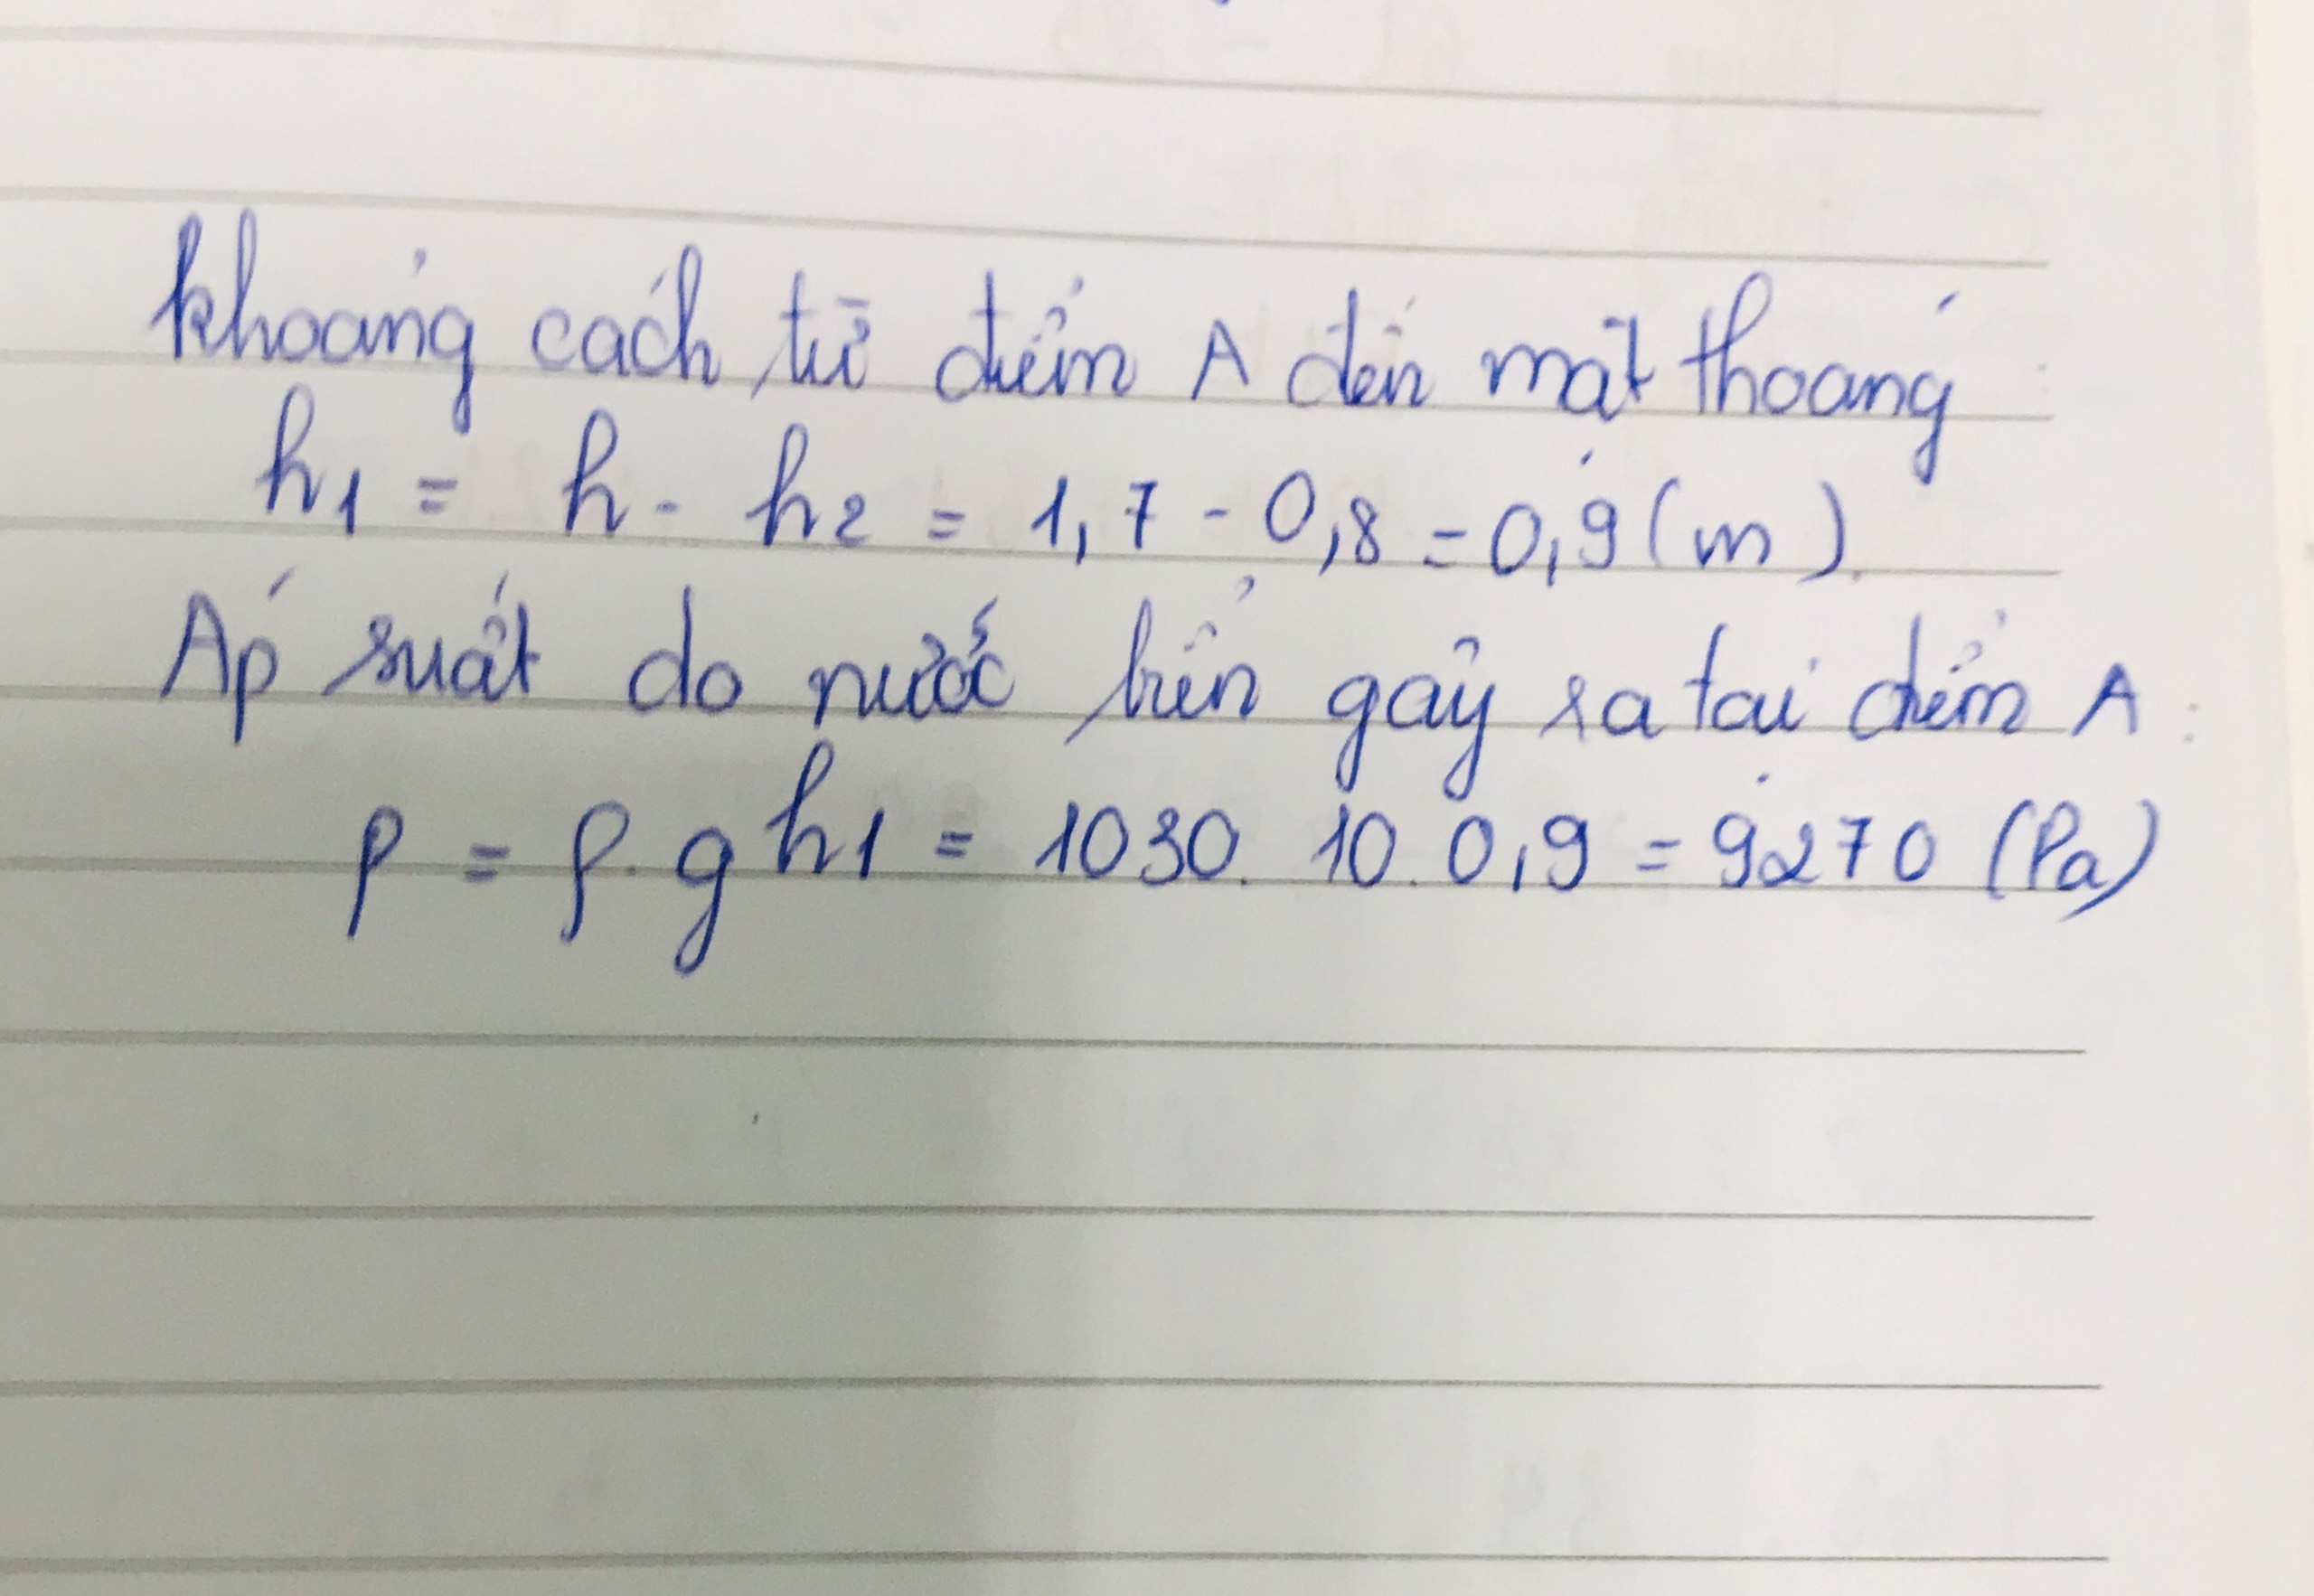 Khoảng cách từ điểm A đến mặt thoáng
h1 = h - h2 = 1,7 - 0,8 = 0,9 (m).
Áp suất do nước biển gây ra tại điểm A :
p = ρ. g h1 = 1030. 10. 0,9 = 9270 (Pa)